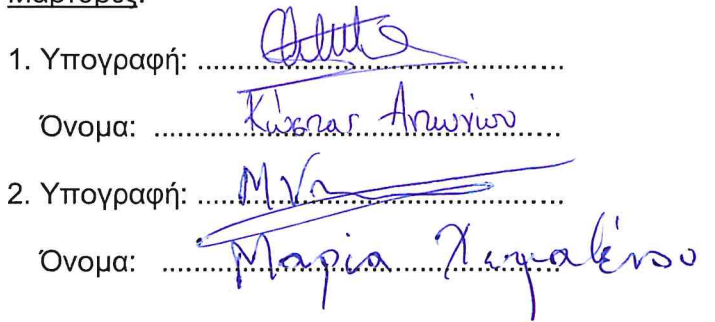 Μάρτυρες:
1. Υπογραφή: ................................................
Όνομα: Κώστας Αντωνίου
2. Υπογραφή: ................................................
Όνομα: Μαρία